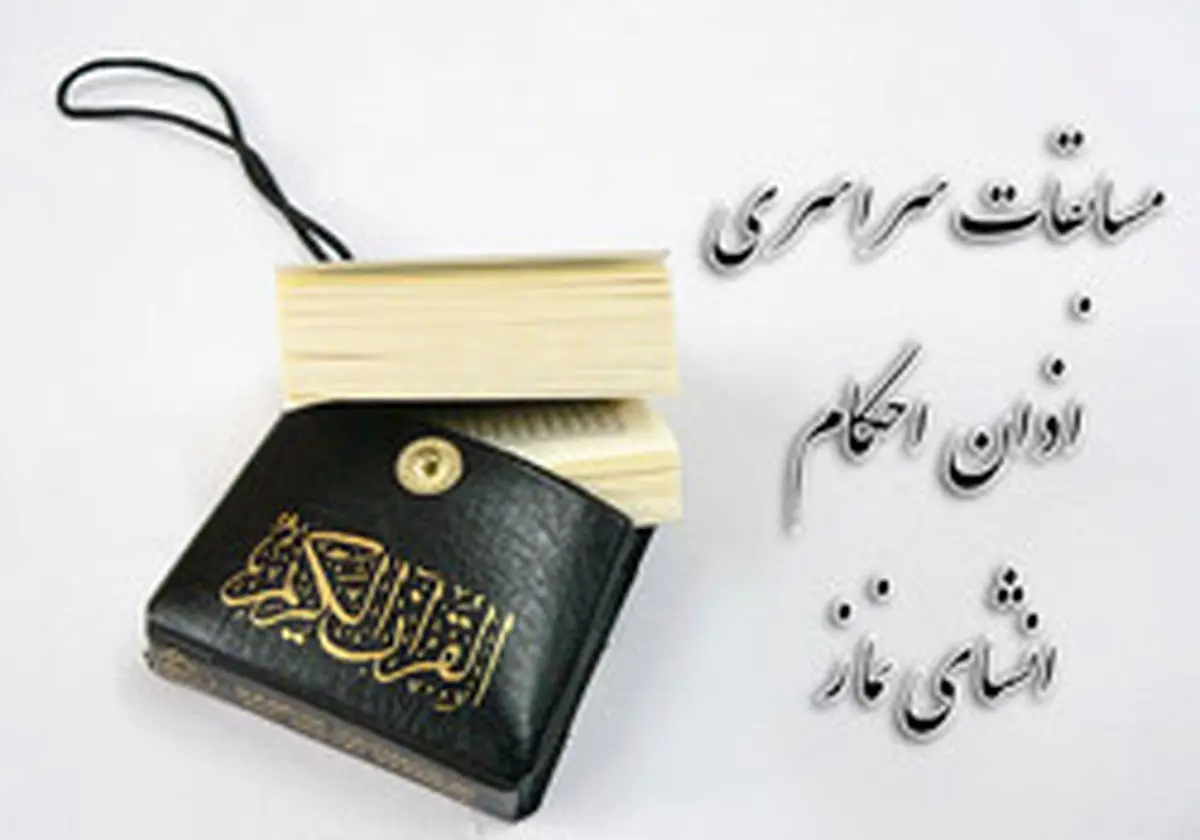 مسابقات سراسری
اذان احکام
انشای نماز
القرآن الكريم